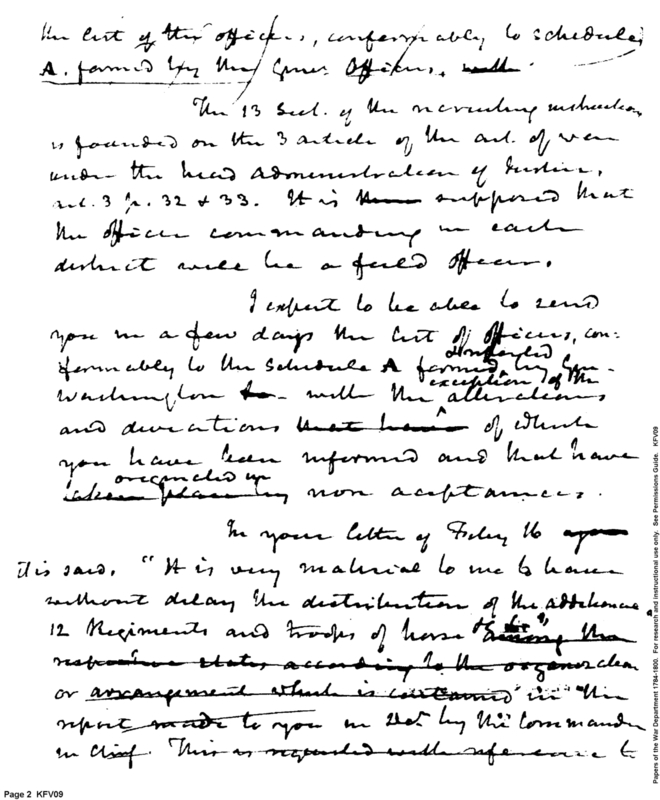 the list of the officers, conformably to schedule
A. formed by the Genr Officers, with
The 13 Sect. of the recruiting instructions
is founded on the 3 article of the art. of war
under the head Administration of Justice,
art. 3 p. 32 & 33. It is supposed that
the officer commanding in each
district will be a field officer.
I expect to be able to send
you in a few days the list of officers, con:
formably to the schedule A formed by Gen.
exception of the
Washington with the alterations
and deviations that have of which
you have been informed and that have
originated in
taken place by non acceptances.
In your letter of Feby 16
it is said. "It is very material to me to have
without delay the distribution of the additional
12 Regiments and troops of horse &c" among the
respective states according to the organization
or arrangement which is contained in the
report made to you in Decr by the Commander
in Chief. This is requested with reference to
Page 2 KFV09
Papers of the War Department 1784-1800. For research and instructional use only. See Permissions Guide. KFV09